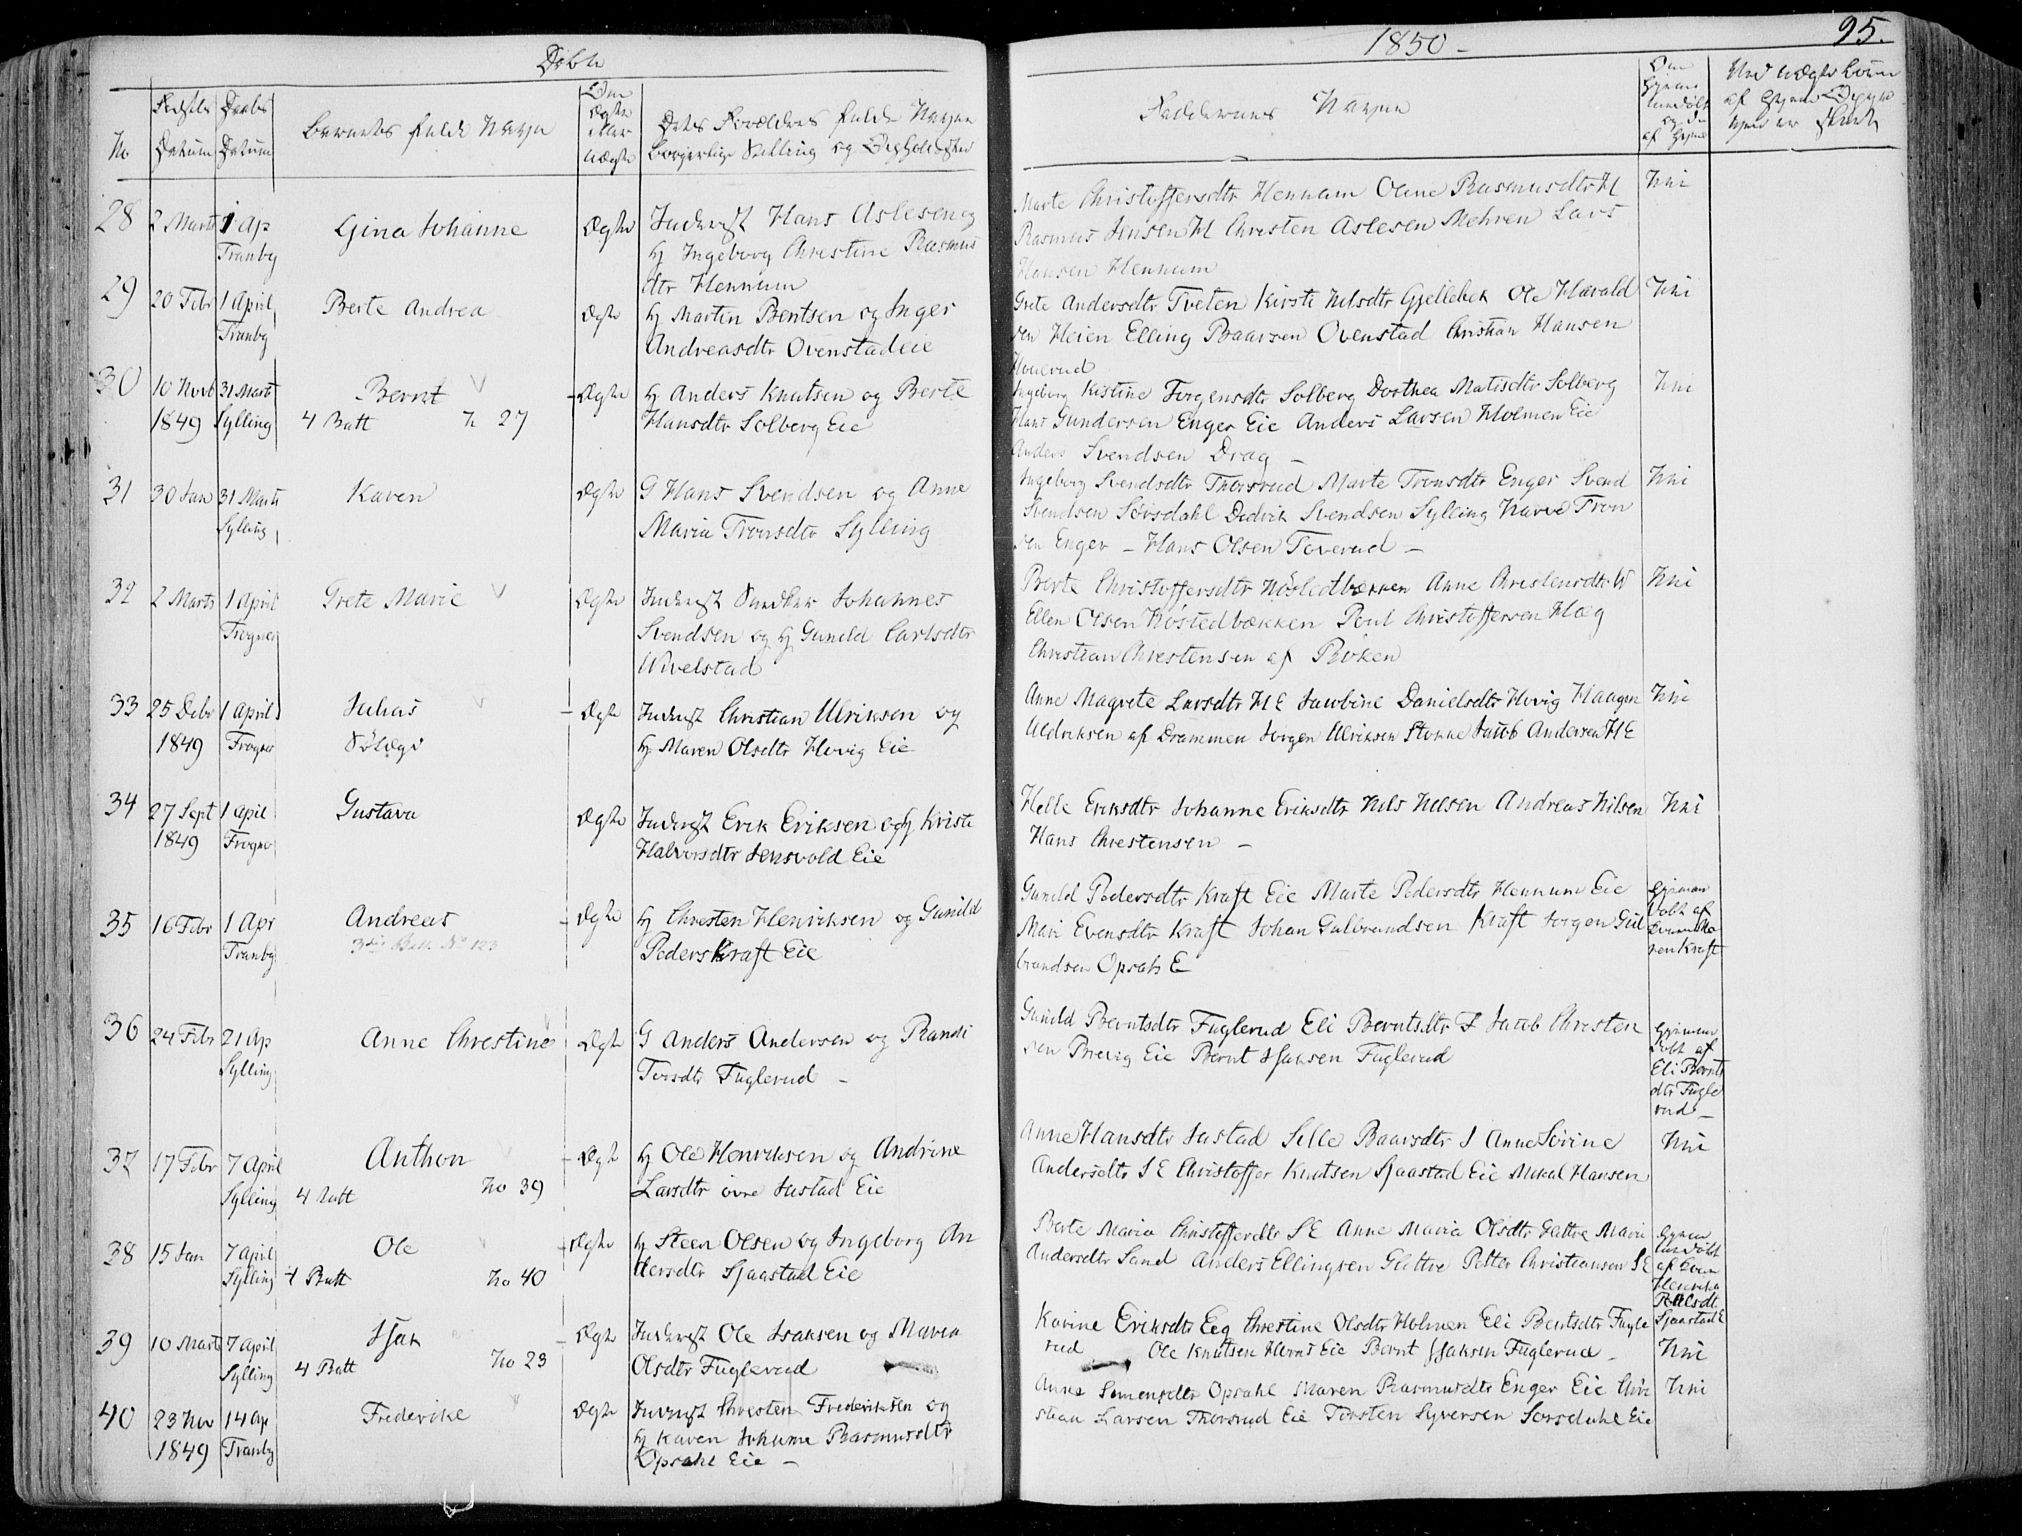 Døbte
1850 -
95.
No
Fødsels Datum
Daabs Datum
Barnets fulde Navn
Om Ægte eller uægte
Dets Forældres fulde Navne
Borgerlige Stilling og Opholdssted
Faddernes Navne
28 2 Marts 1 Ap Tranby
Gina Johanne
Ægte
Inderst Hans Aslesen og
Hj Ingeborg Christine Rasmus
dtr Hennum
Marte Christoffersdtr Hennum Oline Rasmusdtr H
Rasmus Jensen H Christen Aslesen Mehren Lars
Hansen Hennum
Nei
29 20 Febr 1 April Tranby
Berte Andrea
Ægte
Hj Martin Bentsen og Inger
Andreasdtr Ovenstad eie
Grete Andersdtr Tveten Kirsti Nilsdtr Gjellebek Ole Harald
sen Heien Elling Baarsen Ovenstad Christian Hansen
Nei
30 10 Novb 1849 31 Marts Sylling
Bernt
4 Batt N 27
Ægte
Hj Anders Knutsen og Berte
Hansdtr Solberg Eie
Ingeborg Kistine Jørgensdtr Solberg Dorthea Matisdtr Solberg
Hans Gundersen Enger Eie Anders Larsen Holmen Eie
Anders Svendsen Drag -
Nei
31 30 Jan 31 Marts Sylling
Karen
Ægte
G Hans Svendsen og Anne
Maria Tronsdtr Sylling
Ingeborg Svendsdtr Thorsrud Marte Tronsdtr Enger Svend
Svendsen Sørsdahl Dedrik Svendsen Sylling Narve Tron
sen Enger - Hans Olsen Toverud -
Nei
32 2 Marts 1 April Frogner
Grete Marie
Ægte
Inderst Snedker Johannes
Svendsen og Hj Gunild Carlsdtr
Wivelstad
Berte Christoffersdtr Røstedbækken Anne Christensdtr W
Ellen Olsen Røstedbækken Poul Christoffersen Hæg
Christian Christensen af Røken
Nei
33 25 Debr 1849 1 April Frogner
Julius
Ægte
Inderst Christian Ulriksen og
Hj Maren Olsdtr Hovig Eie
Anne Magrete Larsdtr H E Jacobine Danielsdtr Hovig Haagen
Uldriksen af Drammen Jørgen Ulriksen Stokke Jacob Andersen H E
Nei
34 27 Sept 1849 1 April Frogner
Gustava
Ægte
Inderst Erik Eriksen og Hj Kristi
Halvorsdtr Jensvold Eie
Helle Eriksdtr Johanne Eriksdtr Nils Nilsen Andreas Nilsen
Hans Christensen -
Nei
35 16 Febr 1 Apr Tranby
Andreas
3die Batt. No 123
Ægte
Hj Christen Henriksen og Gunild
Peders Kraft Eie
Gunild Pedersdtr Kraft Eie Marte Pedersdtr Hennum Eie
Mari Evensdtr Kraft Johan Gulbrandsen Kraft Jørgen Gul
brandsen Opsahl E
36 24 Febr 21 Ap Sylling
Anne Christine
Ægte
G Anders Andersen og Randi
Torsdtr Fuglerud -
Gunild Berntsdtr Fuglerud Eli Berntsdtr F Jacob Christen
sen Brevig Eie Bernt Isaksen Fuglerud
Hjemme
Døbt af
Eli Bernts
dtr Fugle
rud -
37 17 Febr 7 April Sylling
Anthon
4 Batt No 39
Ægte
Hj Ole Henriksen og Andrine
Larsdtr øvre Justad Eie
Anne Hansdtr Justad Sille Baarsdtr J Anne Sørine
Andersdtr S E Christoffer Knutsen Sjaastad Eie Mikal Hansen
Nei
38 15 Jan 7 April Sylling
Ole
4 Batt No 40
Ægte
Hj Steen Olsen og Ingeborg An
dersdtr Sjaastad Eie
Berte Maria Christoffersdtr S E Anne Maria Olsdtr Glettre Mari
Andersdtr Sand Anders Ellingsen Glettre Petter Christiansen S E
39 10 Marts 7 April Sylling
Isak
4 Batt No 23
Ægte
Inderst Ole Isaksen og Maren
Olsdtr Fuglerud
Karine Eriksdtr Eeg Christine Olsdtr Holmen Eli Bentsdtr Fugle
rud Ole Knutsen Horns Eie Bernt Isaksen Fuglerud -
Nei
40 23 Nov 1849 14 Ap Tranby
Frederike
Ægte
Inderst Christen Frederiksen og
Hj Karen Johanne Rasmusdtr
Opsahl Eie -
Anne Simensdtr Opsahl Maren Rasmusdtr Enger Eie Chri
stian Larsen Thorsrud Eie Torsten Syversen Sørsdahl Eie
Nei